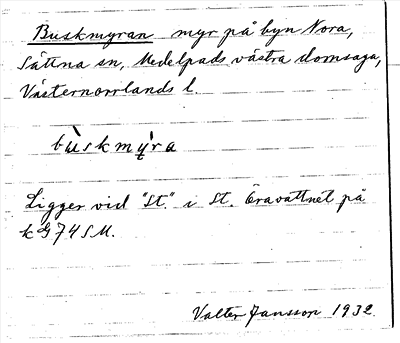 Buskmyran myr på byn Nora,
Sättna sn, Medelpads västra domsaga,
Västernorrlands l.
bùskmy̢̍ra
Ligger vid "St." i St. Öravattnet på
k G74 SM.
Valter Jansson 1932.